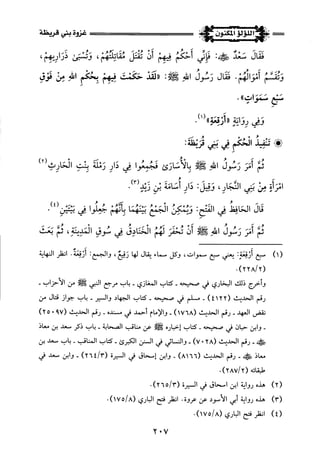 اللؤلؤ المكنون
غزوة بني قريظة
فَقَالَ سَعْدٌ ﷺ: فَإِنِّي أَحْكُمُ فِيهِمْ أَنْ تُقْتَلَ مُقَاتِلَتُهُمْ، وَتُسْبَى ذَرَارِيهِمْ،
وَتُقَسَّمَ أَمْوَالُهُمْ. فَقَالَ رَسُولُ اللهِ ﷺ: «لَقَدْ حَكَمْتَ فِيهِمْ بِحُكْمِ اللهِ مِنْ فَوْقِ
سَبْعِ سَمَوَاتٍ».
وَفِي رِوَايَةٍ «أَرْقِعَةٍ»(١).
تَنْفِيذُ الْحُكْمِ فِي بَنِي قُرَيْظَةَ:
ثُمَّ أَمَرَ رَسُولُ اللهِ ﷺ بِالْأُسَارَى فَجُمِعُوا فِي دَارِ رَمْلَةَ بِنْتِ الْحَارِثِ(٢)
امْرَأَةٍ مِنْ بَنِي النَّجَّارِ، وَقِيلَ: دَارِ أُسَامَةَ بْنِ زَيْدٍ(٣).
قَالَ الْحَافِظُ فِي الْفَتْحِ: وَيُمْكِنُ الْجَمْعُ بَيْنَهُمَا بِأَنَّهُمْ جُعِلُوا فِي بَيْتَيْنِ(٤).
ثُمَّ أَمَرَ رَسُولُ اللهِ ﷺ أَنْ تُحْفَرَ لَهُمُ الْخَنَادِقُ فِي سُوقِ الْمَدِينَةِ، ثُمَّ بَعَثَ
(١) سبع أرْقِعَةٍ: يعني سبع سموات، وكل سماء يقال لها رَقِيعٌ، والجمع: أَرْقِعَةٌ. انظر النهاية
(٢٢٨/٢).
وأخرج ذلك البخاري في صحيحه ـ كتاب المغازي ـ باب مرجع النبي ﷺ من الأحزاب ـ
رقم الحديث (٤١٢٢) ـ مسلم في صحيحه ـ كتاب الجهاد والسير ـ باب جواز قتال من
نقض العهد ـ رقم الحديث (١٧٦٨) ـ والإمام أحمد في مسنده ـ رقم الحديث (٢٥٠٩٧)
ـ وابن حبان في صحيحه ـ كتاب إخباره ﷺ عن مناقب الصحابة ـ باب ذكر سعد بن معاذ
ـ رقم الحديث (٧٠٢٨) ـ والنسائي في السنن الكبرى ـ كتاب المناقب ـ باب سعد بن
معاذ ـ رقم الحديث (٨١٦٦) ـ وابن إسحاق في السيرة (٢٦٤/٣) ـ وابن سعد في
طبقاته (٢٨٧/٢).
(٢) هذه رواية ابن اسحاق في السيرة (٢٦٥/٣).
(٣) هذه رواية أبي الأسود عن عروة. انظر فتح الباري (١٧٥/٨).
(٤) انظر فتح الباري (١٧٥/٨).
٢٠٧